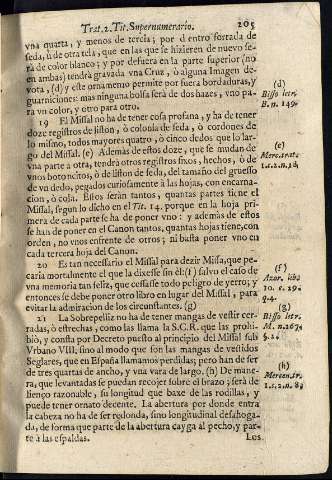 Trat. 2. Tit. Supernumerario. 205
vna quarta, y menos de tercia; por dentro forrada de
seda, ù de otra tela, que en las que se hizieren de nuevo se-
rà de color blanco; y por defuera en la parte superior (no
en ambas) tendrá gravada vna Cruz, ò alguna Imagen de-
vota, (d) y este ornamento permite por fuera bordaduras, y
guarniciones: mas ninguna bolsa serà de dos hazes, vno pa-
ra vn color, y otro para otro.
19 El Missal no ha de tener cosa profana, y ha de tener
doze registros de liston, ò colonia de seda, ò cordones de
lo mismo, todos mayores quatro, ò cinco dedos que lo lar-
go del Missal. (e) Ademàs de estos doze, que se mudan de
vna parte a otra, tendrà otros registros fixos, hechos, ò de
vnos botoncitos, ò de liston de seda, del tamaño del gruesso
de vn dedo, pegados curiosamente à las hojas, con encarna-
cion, ò cola. Estos seràn tantos, quantas partes tiene el
Missal, segun lo dicho en el Tit. 14. porque en la hoja pri-
mera de cada parte se ha de poner vno: y ademàs de estos
se han de poner en el Canon tantos, quantas hojas tiene, con
orden, no vnos enfrente de otros; ni basta poner vno en
cada tercera hoja del Canon.
20 Es tan necessario el Missal para dezir Missa, que pe-
caria mortalmente el que la dixesse sin èl: (f) salvo el caso de
vna memoria tan feliz, que cessasse todo peligro de yerro; y
entonces se debe poner otro libro en lugar del Missal, para
evitar la admiracion de los circunstantes. (g)
21 La Sobrepelliz no ha de tener mangas de vestir cer-
radas, ò estrechas, como las llama la S.C.R. que las prohi-
biò, y consta por Decreto puesto al principio del Missal sub
Vrbano VIII, sino al modo que son las mangas de vestidos
Seglares, que en España llamamos perdidas; pero han de ser
de tres quartas de ancho, y vna vara de largo. (h) De mane-
ra, que levantadas se puedan recojer sobre el brazo; serà de
lienço razonable, su longitud que baxe de las rodillas, y
puede tener ornato decente. La abertura por donde entra
la cabeza no ha de ser redonda, sino longitudinal desahoga-
da, de forma que parte de la abertura cayga al pecho, y par-
te à las espaldas. Los.
(d)
Bisso letr.
B. n. 149.
(e)
Merc. trat.
1. s. 2. n. 18
(f)
Azor. lib.
10. c. 29.
q. 4.
(g)
Bisso letr.
M. n. 267.
§. 21.
(h)
Mercen. tr.
1. s. 2. n. 8